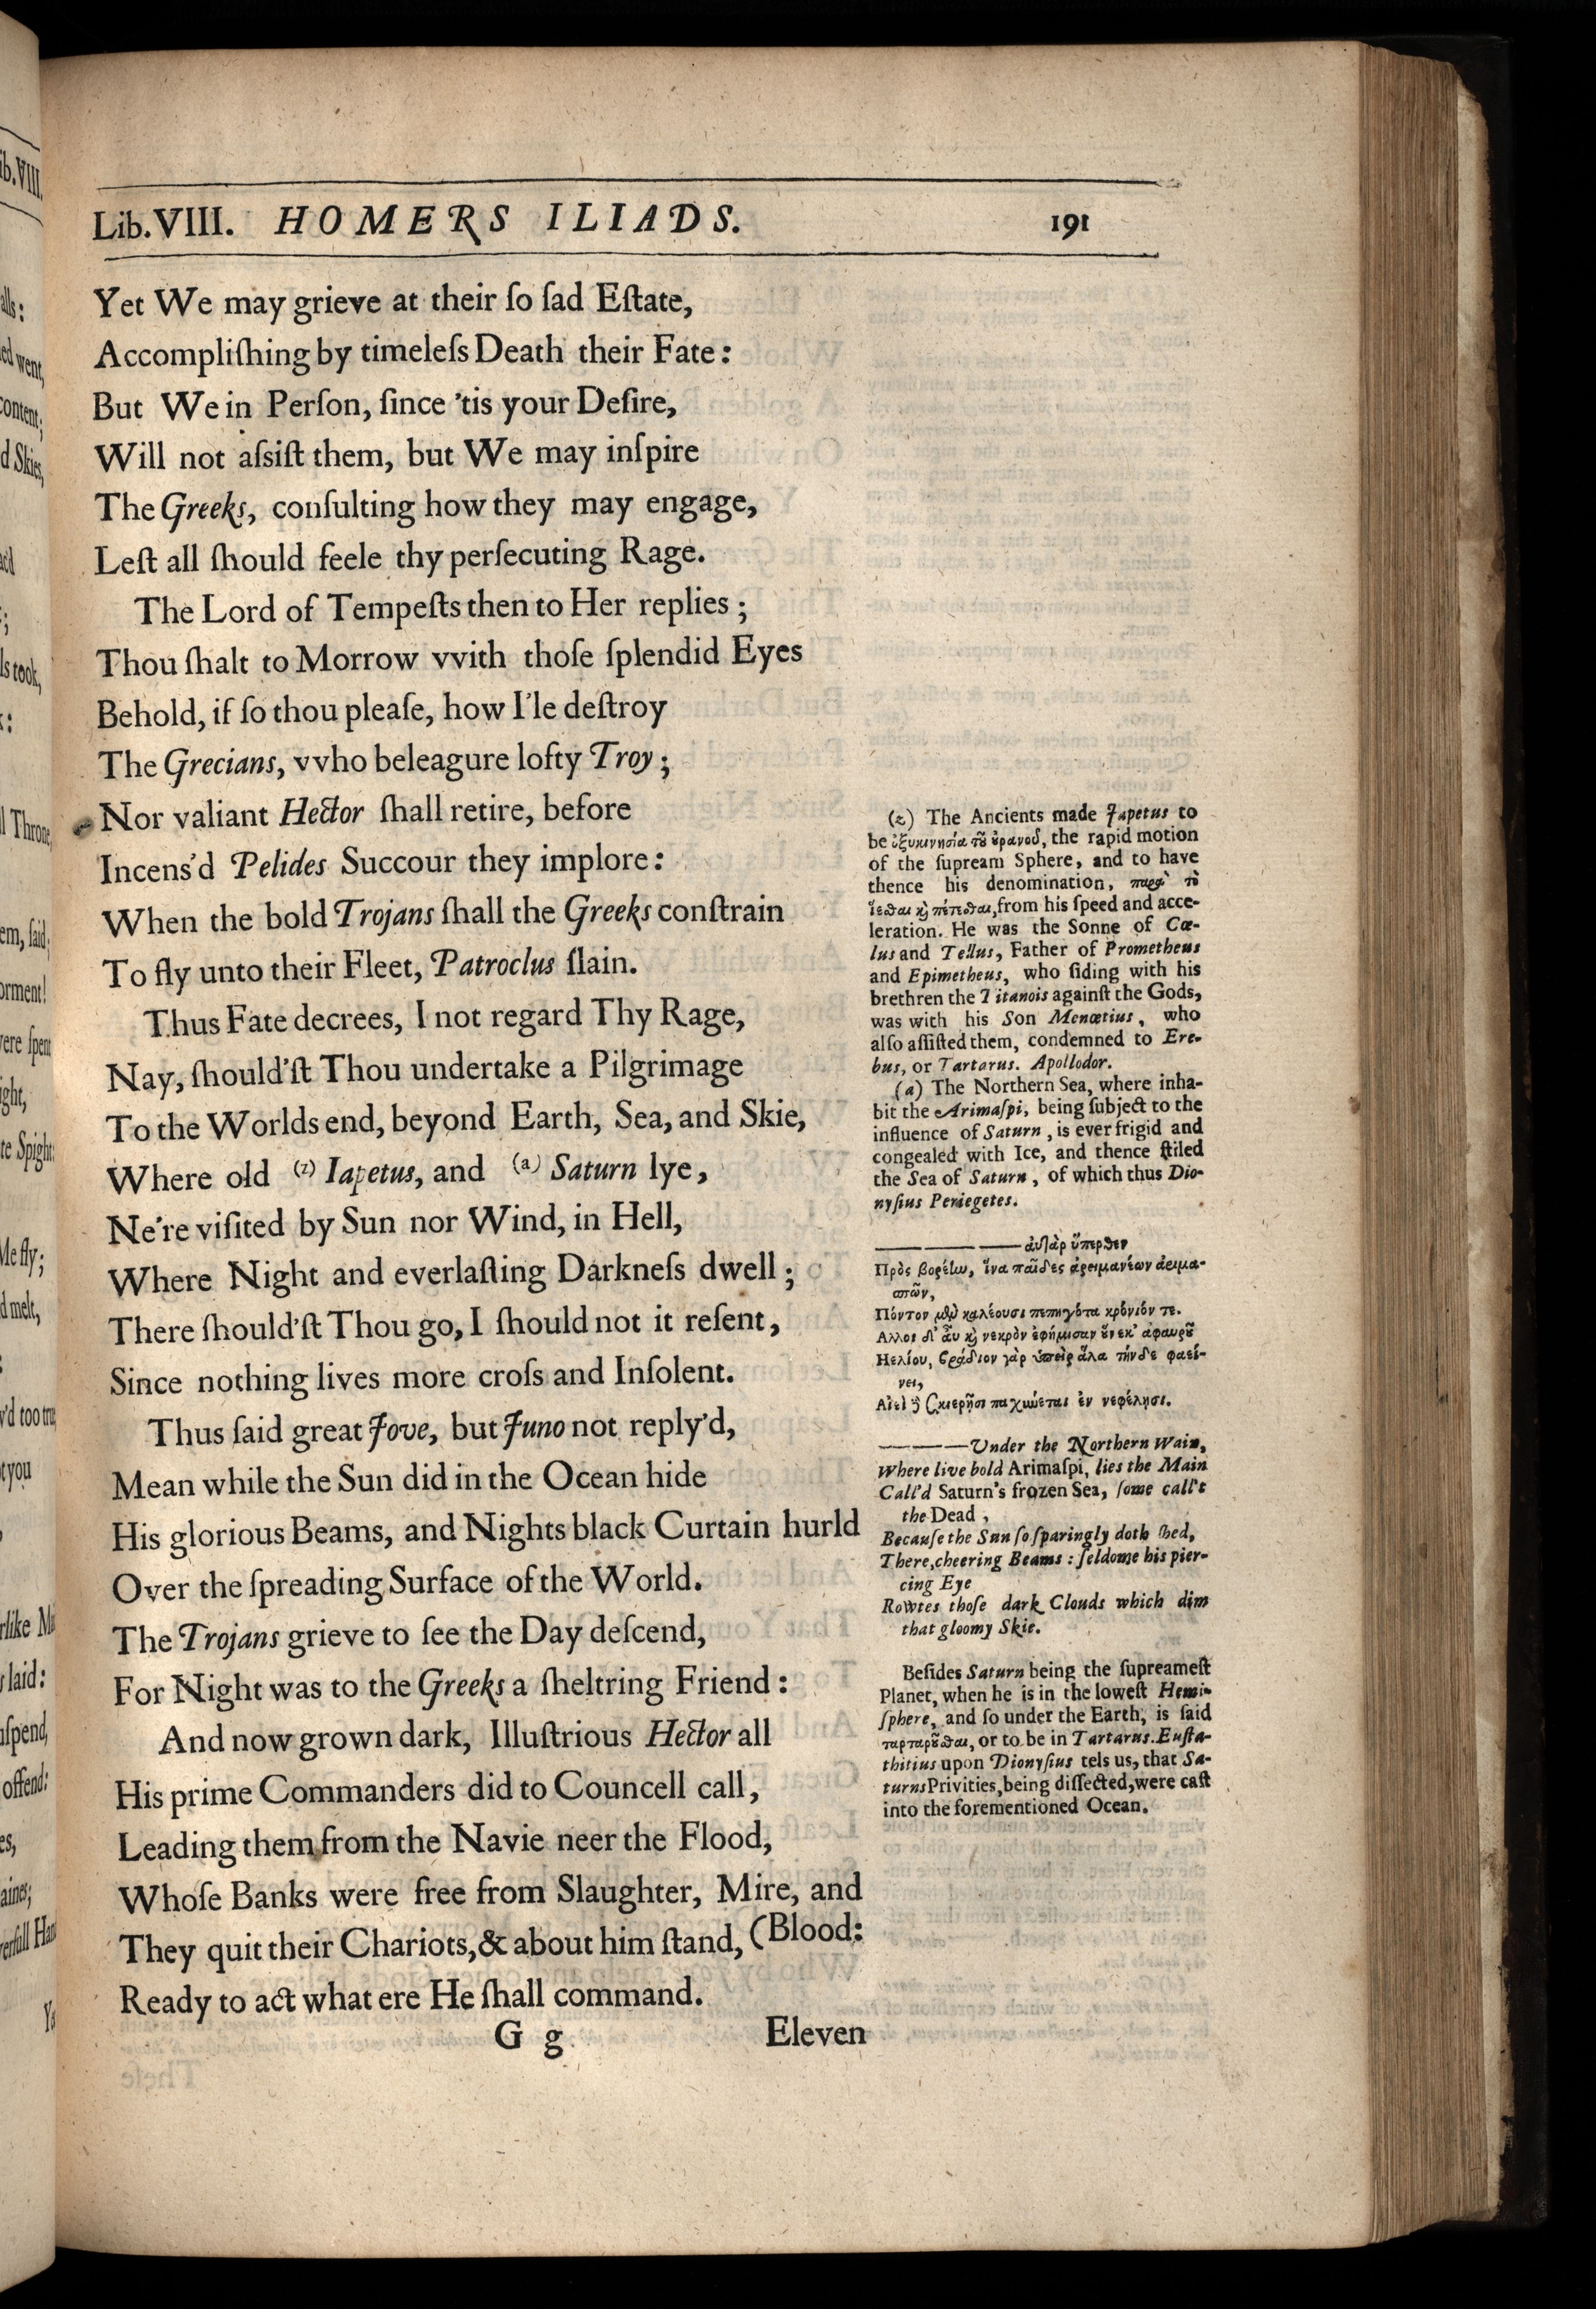 Lib.VIII. HOMERS ILIADS. 191
Yet We may grieve at their ſo ſad Eſtate,
Accompliſhing by timeleſs Death their Fate:
But We in Perſon, ſince 'tis your Deſire,
Will not aſsiſt them, but We may inſpire
The Greeks, conſulting how they may engage,
Leſt all ſhould feele thy perſecuting Rage.
The Lord of Tempeſts then to Her replies;
Thou ſhalt to Morrow vvith thoſe ſplendid Eyes
Behold, if ſo thou pleaſe, how I'le deſtroy
The Grecians, vvho beleagure lofty Troy;
Nor valiant Hector ſhall retire, before
Incens'd Pelides Succour they implore:
When the bold Trojans ſhall the Greeks conſtrain
To fly unto their Fleet, Patroclus ſlain.
Thus Fate decrees, I not regard Thy Rage,
Nay, ſhould'ſt Thou undertake a Pilgrimage
To the Worlds end, beyond Earth, Sea, and Skie,
Where old (z) Iapetus, and (a) Saturn lye,
Ne're viſited by Sun nor Wind, in Hell,
Where Night and everlaſting Darkneſs dwell;
There ſhould'ſt Thou go, I ſhould not it reſent,
Since nothing lives more croſs and Inſolent.
Thus ſaid great Jove, but Juno not reply'd,
Mean while the Sun did in the Ocean hide
His glorious Beams, and Nights black Curtain hurld
Over the ſpreading Surface of the World.
The Trojans grieve to ſee the Day deſcend,
For Night was to the Greeks a ſheltring Friend:
And now grown dark, Illuſtrious Hector all
His prime Commanders did to Councell call,
Leading them from the Navie neer the Flood,
Whoſe Banks were free from Slaughter, Mire, and
(Blood:
They quit their Chariots,& about him ſtand,
Ready to act what ere He ſhall command.
G g Eleven
(z) The Ancients made Japetus to
be ὀξυκινησία τοῦ οὐρανοῦ, the rapid motion
of the ſupream Sphere, and to have
thence his denomination, παρὰ τὸ
ἵεσθαι καὶ πέτεσθαι, from his ſpeed and acce-
leration. He was the Sonne of Cœ-
lus and Tellus, Father of Prometheus
and Epimetheus, who ſiding with his
brethren the Titanois againſt the Gods,
was with his Son Menœtius, who
alſo aſſiſted them, condemned to Ere-
bus, or Tartarus. Apollodor.
(a) The Northern Sea, where inha-
bit the Arimaſpi, being ſubject to the
influence of Saturn, is ever frigid and
congealed with Ice, and thence ſtiled
the Sea of Saturn, of which thus Dio-
nyſius Periegetes.
——— αὐτὰρ ὕπερθεν
Πρὸς βορέην, ἵνα παῖδες ἀρειμανέων ἀριμα-
σπῶν,
Πόντον μὲν καλέουσι πεπηγότα κρόνιόν τε.
Αλλοι δ' αὖ καὶ νεκρὸν ἐφήμισαν οὕνεκ' ἀφαυροῦ
Ηελίου, βράδιον γὰρ ὑπεὶρ ἅλα τήνδε φαεί-
νει,
Αἰεὶ δὲ σκιερῇσι παχύνεται ἐν νεφέλῃσι.
———Under the Northern Wain,
Where live bold Arimaſpi, lies the Main
Call'd Saturn's frozen Sea, ſome call't
the Dead,
Becauſe the Sun ſo ſparingly doth ſhed,
There, cheering Beams: ſeldome his pier-
cing Eye
Rowtes thoſe dark Clouds which dim
that gloomy Skie.
Beſides Saturn being the ſupreameſt
Planet, when he is in the loweſt Hemi-
ſphere, and ſo under the Earth, is ſaid
ταρταροῦσθαι, or to be in Tartarus. Euſta-
thitius upon Dionyſius tels us, that Sa-
turns Privities, being diſſected, were caſt
into the forementioned Ocean.